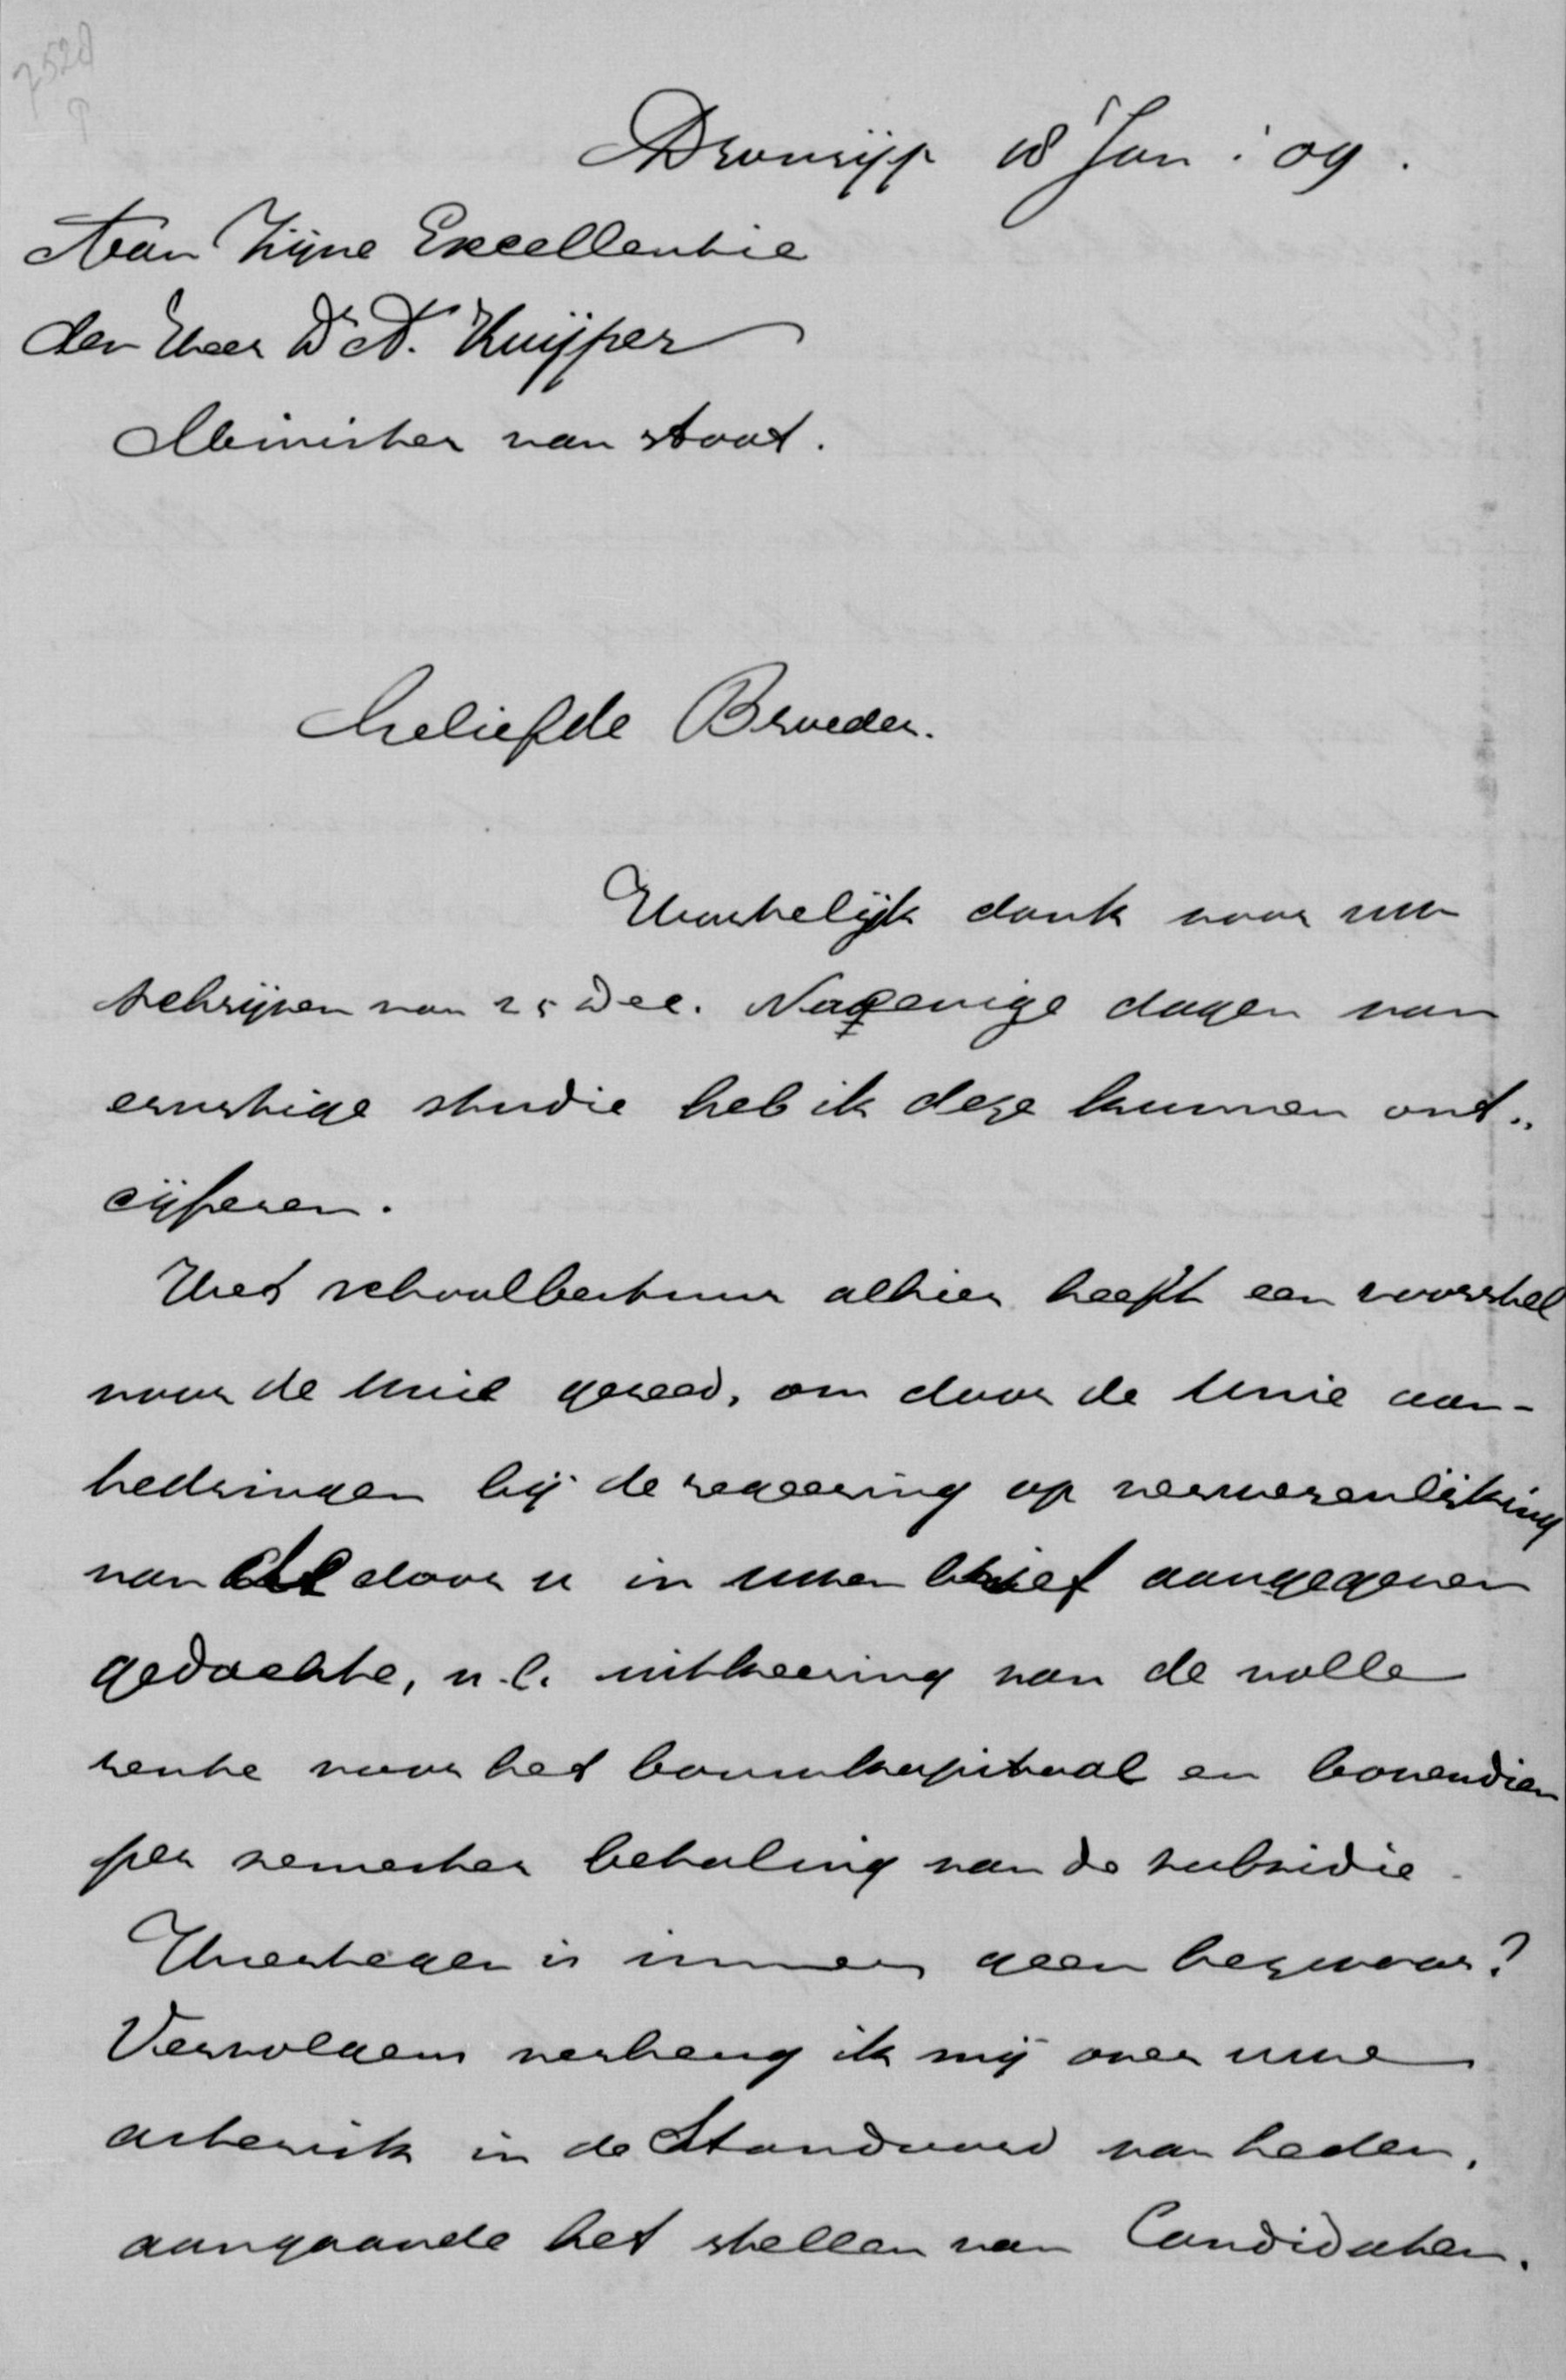 7528
Dronrijp 18 Jan: 09.
Aan Zijne Excellentie
den Heer Dr A. Kuijper
Minister van staat.
Geliefde Broeder.
Hartelijk dank voor uw
schrijven van 25 Dec. Na eenige dagen van
ernstige studie heb ik deze kunnen ont„
cijferen.
Het schoolbestuur alhier heeft een voorstel
voor de Unie gereed, om door de Unie aan-
tedringen bij de regeering op verwezenlijking
van de door u in uwen brief aangegeven
gedachte, n.l. uitkeering van de volle
rente voor het bouwkapitaal en bovendien
per semester betaling van de subsidie.
Hiertegen is immers geen bezwaar?
Vervolgens verheug ik mij over uwe
asterisk in de Standaard van heden,
aangaande het stellen van Candidaten.